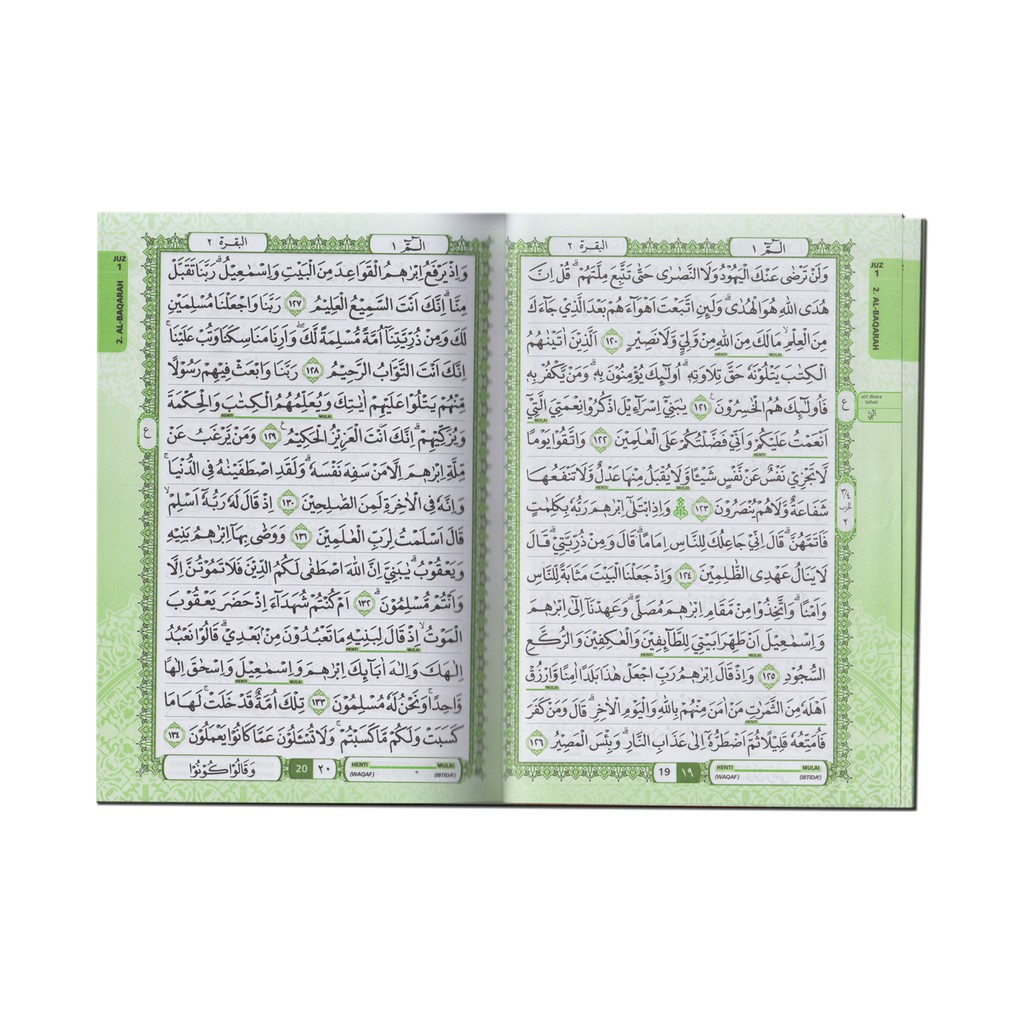 JUZ 1
2. AL-BAQARAH
الۤمّۤ ١
البقرة ٢
وَلَنْ تَرْضٰى عَنْكَ الْيَهُوْدُ وَلَا النَّصٰرٰى حَتّٰى تَتَّبِعَ مِلَّتَهُمْۗ قُلْ اِنَّ
هُدَى اللّٰهِ هُوَ الْهُدٰىۗ وَلَىِٕنِ اتَّبَعْتَ اَهْوَاۤءَهُمْ بَعْدَ الَّذِيْ جَاۤءَكَ
مِنَ الْعِلْمِۙ مَا لَكَ مِنَ اللّٰهِ مِنْ وَّلِيٍّ وَّلَا نَصِيْرٍ ١٢٠ اَلَّذِيْنَ اٰتَيْنٰهُمُ
الْكِتٰبَ يَتْلُوْنَهٗ حَقَّ تِلَاوَتِهٖۗ اُولٰۤىِٕكَ يُؤْمِنُوْنَ بِهٖۗ وَمَنْ يَّكْفُرْ بِهٖ
فَاُولٰۤىِٕكَ هُمُ الْخٰسِرُوْنَ ١٢١ يٰبَنِيْٓ اِسْرَاۤءِيْلَ اذْكُرُوْا نِعْمَتِيَ الَّتِيْٓ
اَنْعَمْتُ عَلَيْكُمْ وَاَنِّيْ فَضَّلْتُكُمْ عَلَى الْعٰلَمِيْنَ ١٢٢ وَاتَّقُوْا يَوْمًا
لَّا تَجْزِيْ نَفْسٌ عَنْ نَّفْسٍ شَيْـًٔا وَّلَا يُقْبَلُ مِنْهَا عَدْلٌ وَّلَا تَنْفَعُهَا
شَفَاعَةٌ وَّلَا هُمْ يُنْصَرُوْنَ ١٢٣ وَاِذِ ابْتَلٰٓى اِبْرٰهٖمَ رَبُّهٗ بِكَلِمٰتٍ
فَاَتَمَّهُنَّۗ قَالَ اِنِّيْ جَاعِلُكَ لِلنَّاسِ اِمَامًاۗ قَالَ وَمِنْ ذُرِّيَّتِيْۗ قَالَ
لَا يَنَالُ عَهْدِى الظّٰلِمِيْنَ ١٢٤ وَاِذْ جَعَلْنَا الْبَيْتَ مَثَابَةً لِّلنَّاسِ
وَاَمْنًاۗ وَاتَّخِذُوْا مِنْ مَّقَامِ اِبْرٰهٖمَ مُصَلًّىۗ وَعَهِدْنَآ اِلٰٓى اِبْرٰهٖمَ
وَاِسْمٰعِيْلَ اَنْ طَهِّرَا بَيْتِيَ لِلطَّاۤىِٕفِيْنَ وَالْعٰكِفِيْنَ وَالرُّكَّعِ
السُّجُوْدِ ١٢٥ وَاِذْ قَالَ اِبْرٰهٖمُ رَبِّ اجْعَلْ هٰذَا بَلَدًا اٰمِنًا وَّارْزُقْ
اَهْلَهٗ مِنَ الثَّمَرٰتِ مَنْ اٰمَنَ مِنْهُمْ بِاللّٰهِ وَالْيَوْمِ الْاٰخِرِۗ قَالَ وَمَنْ كَفَرَ
فَاُمَتِّعُهٗ قَلِيْلًا ثُمَّ اَضْطَرُّهٗٓ اِلٰى عَذَابِ النَّارِۗ وَبِئْسَ الْمَصِيْرُ ١٢٦
19 ١٩
HENTI MULAI
(WAQAF) (IBTIDA')
JUZ 1
2. AL-BAQARAH
الۤمّۤ ١
البقرة ٢
وَاِذْ يَرْفَعُ اِبْرٰهٖمُ الْقَوَاعِدَ مِنَ الْبَيْتِ وَاِسْمٰعِيْلُۗ رَبَّنَا تَقَبَّلْ
مِنَّاۗ اِنَّكَ اَنْتَ السَّمِيْعُ الْعَلِيْمُ ١٢٧ رَبَّنَا وَاجْعَلْنَا مُسْلِمَيْنِ
لَكَ وَمِنْ ذُرِّيَّتِنَآ اُمَّةً مُّسْلِمَةً لَّكَۖ وَاَرِنَا مَنَاسِكَنَا وَتُبْ عَلَيْنَاۚ
اِنَّكَ اَنْتَ التَّوَّابُ الرَّحِيْمُ ١٢٨ رَبَّنَا وَابْعَثْ فِيْهِمْ رَسُوْلًا
مِّنْهُمْ يَتْلُوْا عَلَيْهِمْ اٰيٰتِكَ وَيُعَلِّمُهُمُ الْكِتٰبَ وَالْحِكْمَةَ
وَيُزَكِّيْهِمْۗ اِنَّكَ اَنْتَ الْعَزِيْزُ الْحَكِيْمُ ١٢٩ وَمَنْ يَّرْغَبُ عَنْ
مِّلَّةِ اِبْرٰهٖمَ اِلَّا مَنْ سَفِهَ نَفْسَهٗۗ وَلَقَدِ اصْطَفَيْنٰهُ فِى الدُّنْيَاۚ
وَاِنَّهٗ فِى الْاٰخِرَةِ لَمِنَ الصّٰلِحِيْنَ ١٣٠ اِذْ قَالَ لَهٗ رَبُّهٗٓ اَسْلِمْۙ
قَالَ اَسْلَمْتُ لِرَبِّ الْعٰلَمِيْنَ ١٣١ وَوَصّٰى بِهَآ اِبْرٰهٖمُ بَنِيْهِ
وَيَعْقُوْبُۗ يٰبَنِيَّ اِنَّ اللّٰهَ اصْطَفٰى لَكُمُ الدِّيْنَ فَلَا تَمُوْتُنَّ اِلَّا
وَاَنْتُمْ مُّسْلِمُوْنَۗ ١٣٢ اَمْ كُنْتُمْ شُهَدَاۤءَ اِذْ حَضَرَ يَعْقُوْبَ
الْمَوْتُۙ اِذْ قَالَ لِبَنِيْهِ مَا تَعْبُدُوْنَ مِنْۢ بَعْدِيْۗ قَالُوْا نَعْبُدُ
اِلٰهَكَ وَاِلٰهَ اٰبَاۤىِٕكَ اِبْرٰهٖمَ وَاِسْمٰعِيْلَ وَاِسْحٰقَ اِلٰهًا
وَّاحِدًاۚ وَنَحْنُ لَهٗ مُسْلِمُوْنَ ١٣٣ تِلْكَ اُمَّةٌ قَدْ خَلَتْۚ لَهَا مَا
كَسَبَتْ وَلَكُمْ مَّا كَسَبْتُمْۚ وَلَا تُسْـَٔلُوْنَ عَمَّا كَانُوْا يَعْمَلُوْنَ ١٣٤
وَقَالُوْا كُوْنُوْا
20 ٢٠
HENTI MULAI
(WAQAF) (IBTIDA')